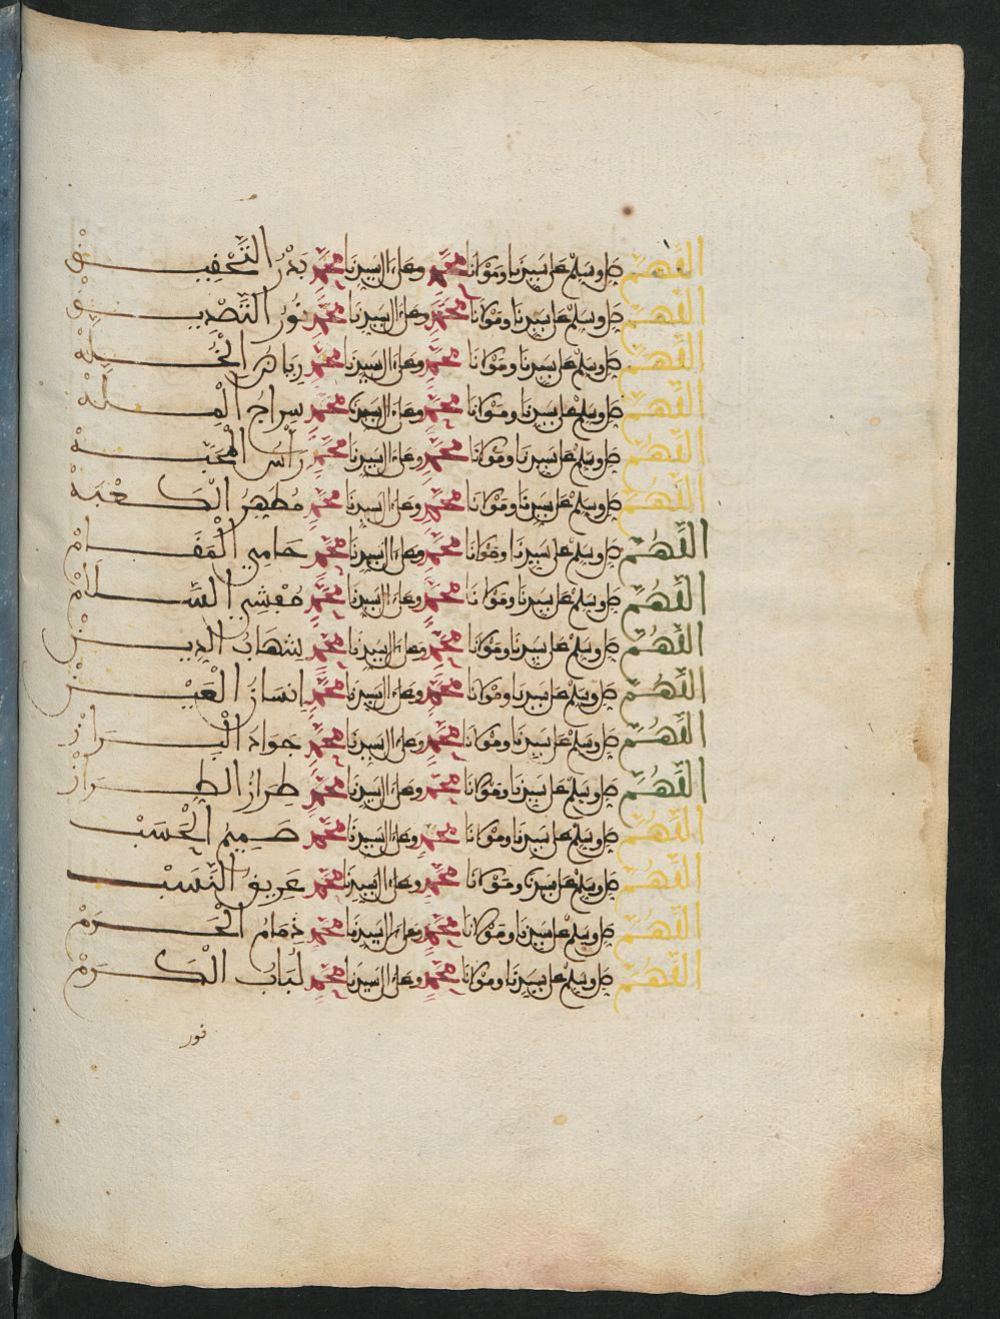 اللَّهُمَّ صل وسلم على سيدنا ومولانا محمد وعلى ءال سيدنا محمد بَدْرُ التَّحْفِيقْ
اللَّهُمَّ صل وسلم على سيدنا ومولانا محمد وعلى ءال سيدنا محمد نُورُ التَّصْدِيقْ
اللَّهُمَّ صل وسلم على سيدنا ومولانا محمد وعلى ءال سيدنا محمد رِيَاضُ الْخُلَّهْ
اللَّهُمَّ صل وسلم على سيدنا ومولانا محمد وعلى ءال سيدنا محمد سِرَاجُ الْمِلَّهْ
اللَّهُمَّ صل وسلم على سيدنا ومولانا محمد وعلى ءال سيدنا محمد رَأْسُ الْمَحَبَّهْ
اللَّهُمَّ صل وسلم على سيدنا ومولانا محمد وعلى ءال سيدنا محمد مُطَهِّرُ الْكَعْبَهْ
اللَّهُمَّ صل وسلم على سيدنا ومولانا محمد وعلى ءال سيدنا محمد حَامِي الْمَقَامْ
اللَّهُمَّ صل وسلم على سيدنا ومولانا محمد وعلى ءال سيدنا محمد مُفْشِي السَّلَامْ
اللَّهُمَّ صل وسلم على سيدنا ومولانا محمد وعلى ءال سيدنا محمد شِهَابُ الدِينْ
اللَّهُمَّ صل وسلم على سيدنا ومولانا محمد وعلى ءال سيدنا محمد إِنسَانُ الْعَيْنْ
اللَّهُمَّ صل وسلم على سيدنا ومولانا محمد وعلى ءال سيدنا محمد جَوَادُ
اللَّهُمَّ صل وسلم على سيدنا ومولانا محمد وعلى ءال سيدنا محمد طِرَازُ الطِّرَازْ
اللَّهُمَّ صل وسلم على سيدنا ومولانا محمد وعلى ءال سيدنا محمد صَمِيمُ الْحَسَبْ
اللَّهُمَّ صل وسلم على سيدنا ومولانا محمد وعلى ءال سيدنا محمد عَرِيقُ النَّسَبْ
اللَّهُمَّ صل وسلم على سيدنا ومولانا محمد وعلى ءال سيدنا محمد ذِمَامُ الْحَرَمْ
اللَّهُمَّ صل وسلم على سيدنا ومولانا محمد وعلى ءال سيدنا محمد لُبَابُ الْكَرَمْ
نور